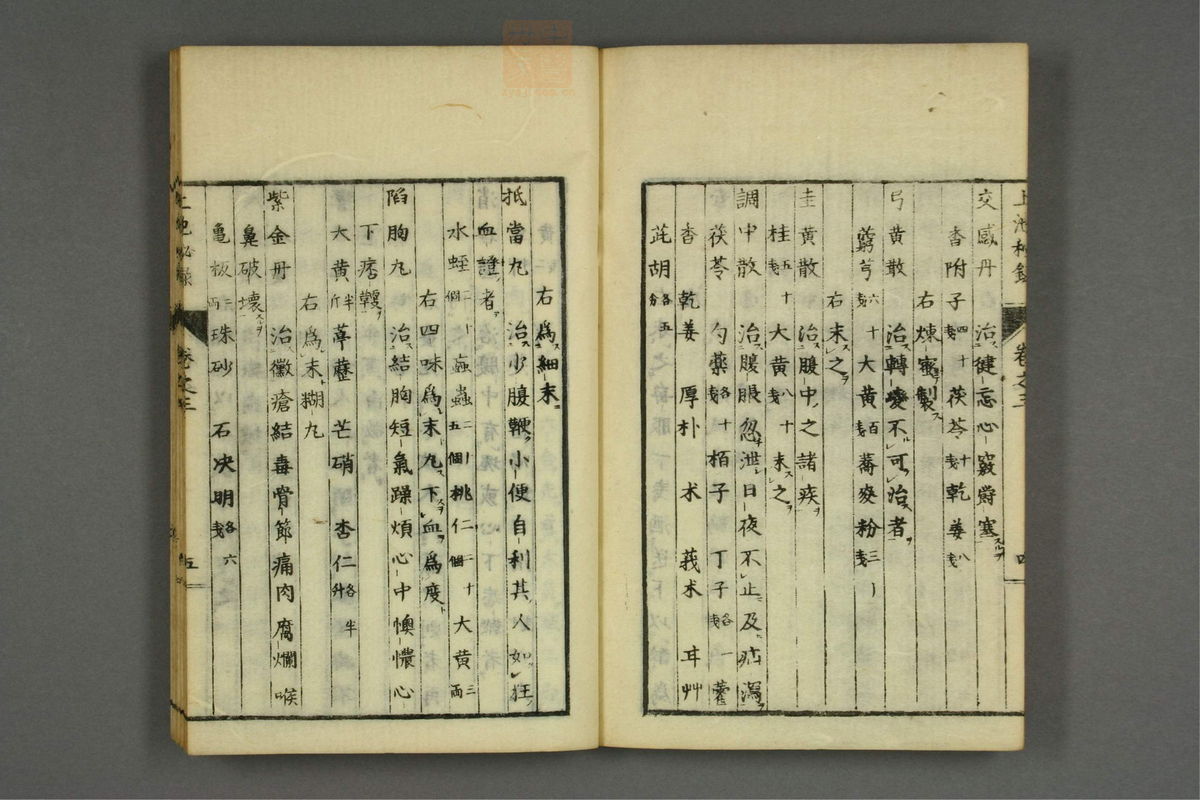 交感丹 治健忘心竅欝塞スルヲ
香附子四十戔 茯苓十戔 乾姜八戔
右煉蜜製ス
弓黄散 治轉變不可治者ヲ
藭芎六十戔 大黄百戔 蕎麥粉三十戔
右末之ヲ
圭黄散 治腹中之諸疾ヲ
桂五十戔 大黄八十戔 末之ヲ
調中散 治腹脹忽泄日夜不止及疝瀉ヲ
茯苓 勺藥各十戔 栢子 丁子各一戔 藿
香 乾姜 厚朴 术 莪术 耳艸
茈胡各五分
右爲細末ニ
抵當丸 治小腹鞕小便自利其人如狂ノ
血證者ヲ
水蛭二十個 蝱蟲二十五個 桃仁二十個 大黄三両
右四味爲末丸下血爲度
陷胸丸 治結胸短氣躁煩心中懊憹心
下痞鞕ヲ
大黄半斤 葶藶 芒硝 杏仁各半升
右爲末糊丸
紫金丹 治黴瘡結毒骨節痛肉腐爛喉
鼻破壞スルヲ
亀板二両 珠砂 石决明各六戔
卷之三
五
卷之三
四